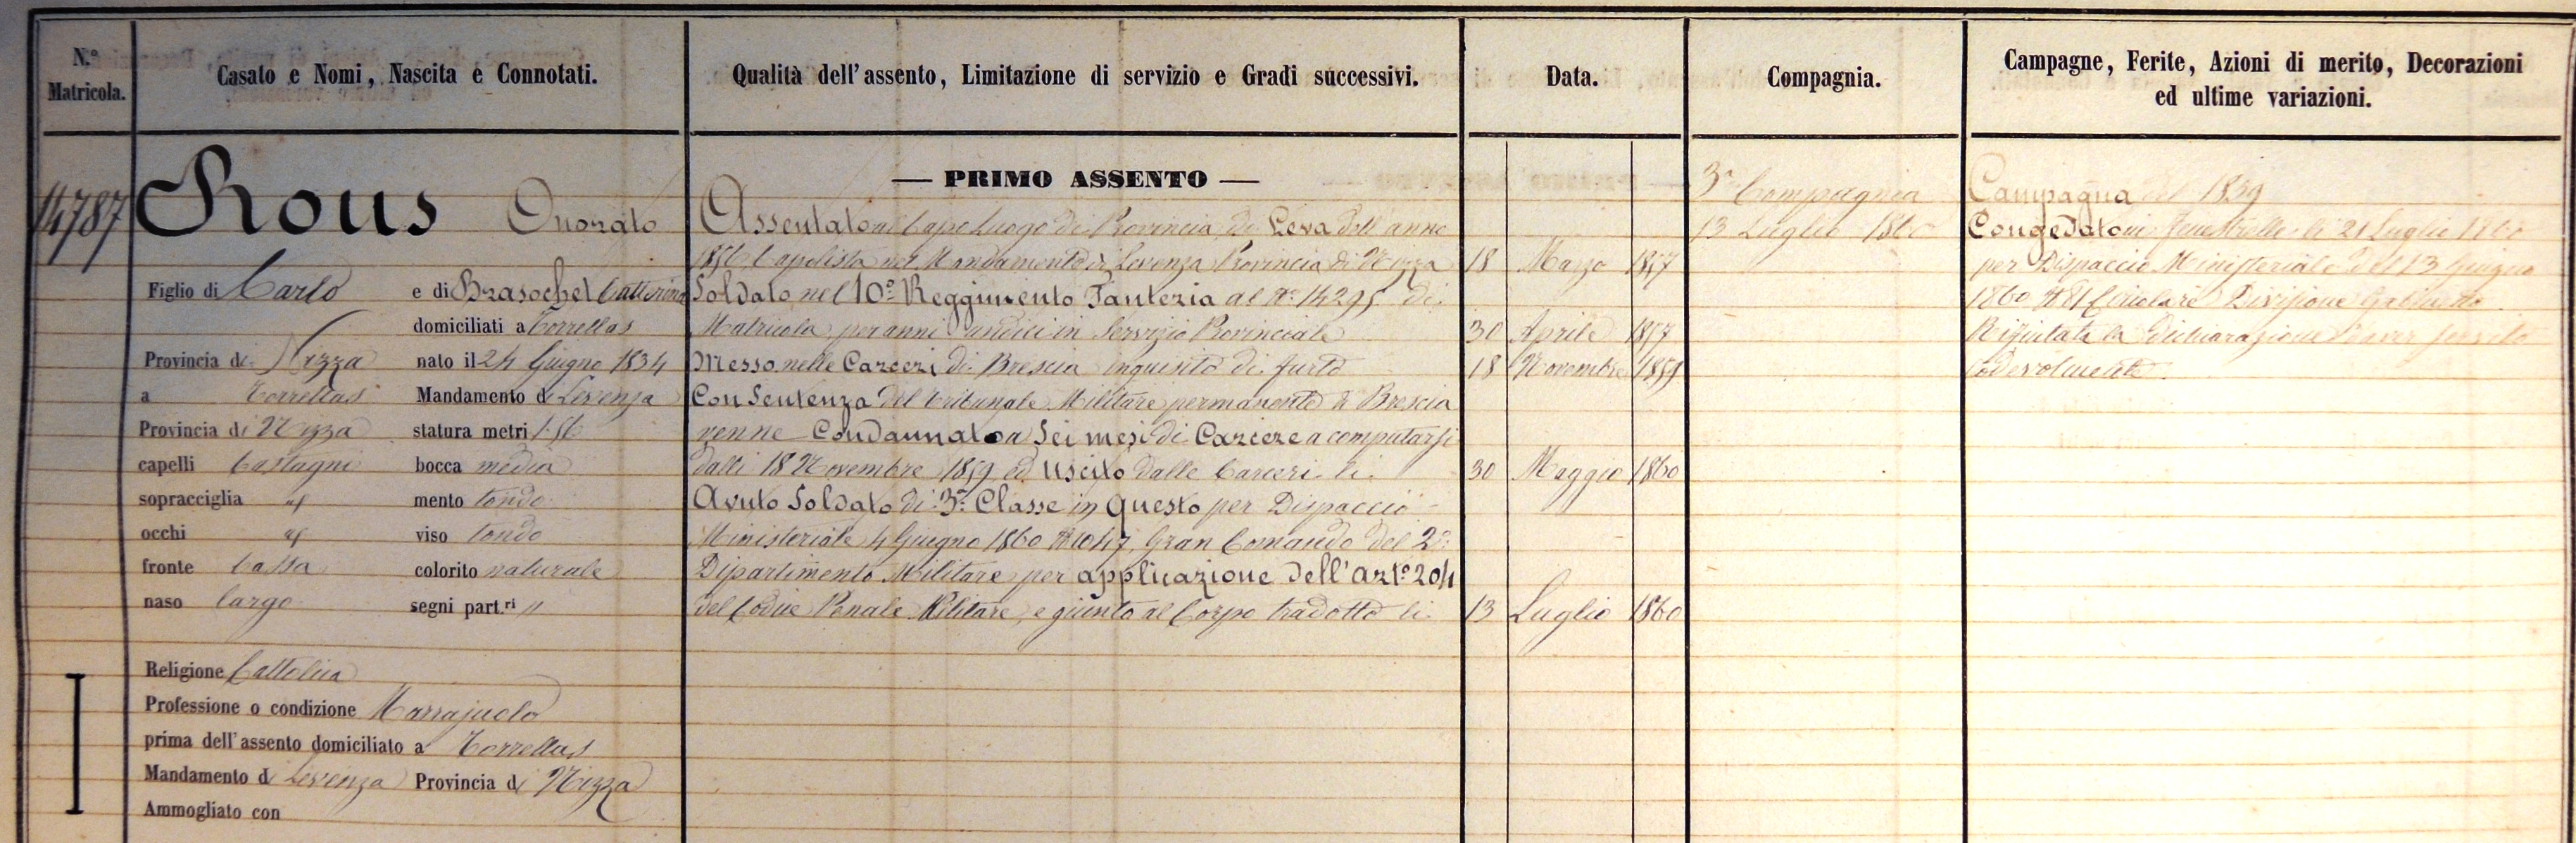 N.º Matricola.
Casato e Nomi, Nascita e Connotati.
Qualità dell'assento, Limitazione di servizio e Gradi successivi.
Data.
Compagnia.
Campagne, Ferite, Azioni di merito, Decorazioni
ed ultime variazioni.
14787
Rous Onorato
Figlio di Carlo e di Brasochel Catterina
domiciliati a Torrettas
Provincia di Nizza nato il 24 Giugno 1834
a Torrettas Mandamento di Levenza
Provincia di Nizza statura metri 1.56
capelli Castagni bocca media
sopracciglia id mento tondo
occhi id viso tondo
fronte bassa colorito naturale
naso largo segni part.ri //
Religione Cattolica
Professione o condizione Marrajuolo
prima dell'assento domiciliato a Torrettas
Mandamento di Levenza Provincia di Nizza
Ammogliato con
— PRIMO ASSENTO —
Assentato al Capo Luogo di Provincia di Leva dell'anno
1856 Capolista nel Mandamento di Levenza Provincia di Nizza 18 Marzo 1857
Soldato nel 10º Reggimento Fanteria al Nº 14295 di
Matricola per anni undici in Servizio Provinciale 30 Aprile 1857
Messo nelle Carceri di Brescia inquisito di furto 18 Novembre 1859
Con Sentenza del Tribunale Militare permanente di Brescia
venne Condannato a Sei mesi di Carcere a computarsi
dalli 18 Novembre 1859 ed uscito dalle Carceri li 30 Maggio 1860
Avuto Soldato di 3ª Classe in questo per Dispaccio
Ministeriale 4 Giugno 1860 Nº 1047 Gran Comando del 2º
Dipartimento Militare per applicazione dell'artº 204
del Codice Penale Militare, e giunto al Corpo tradotto li 13 Luglio 1860
3ª Compagnia
13 Luglio 1860
Campagna del 1859
Congedato in Fenestrelle li 21 Luglio 1860
per Dispaccio Ministeriale del 13 Giugno
1860 Nº 81 Circolare Divisione Gabinetto
Rifiutata la Dichiarazione d'aver servito
lodevolmente